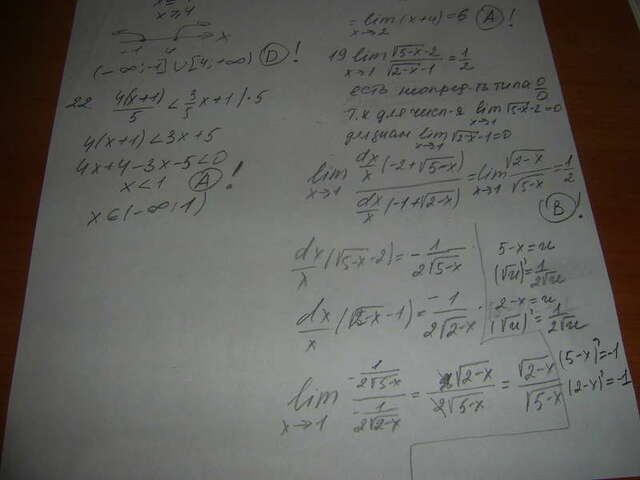 x⩾4
-1 4 x
(-∞;-1]∪[4;+∞) (D)!
22 4(x+1)/5 < 3/5 x+1 |·5
4(x+1)<3x+5
4x+4-3x-5<0
x<1 (A)!
x∈(-∞;1)
=lim x→2 (x+4)=6 (A)!
19 lim x→1 (√(5-x)-2)/(√(2-x)-1)=1/2
есть неопред-ть типа 0/0
т.к для числ-я lim x→1 √(5-x)-2=0
для знам lim x→1 √(2-x)-1=0
lim x→1 (dx/x(-2+√(5-x)))/(dx/x(-1+√(2-x)))=(lim x→1 √(2-x)/√(5-x)=1/2
(B)!
dx/x(√(5-x)-2)=-1/(2√(5-x))
5-x=u
(√u)'=1/(2√u)
dx/x(√(2-x)-1)=-1/(2√(2-x))
2-x=u
(√u)'=1/(2√u)
lim x→1 (-1/(2√(5-x)))/(-1/(2√(2-x)))=2√(2-x)/2√(5-x)=√(2-x)/√(5-x)
(5-x)'=-1
(2-x)'=-1